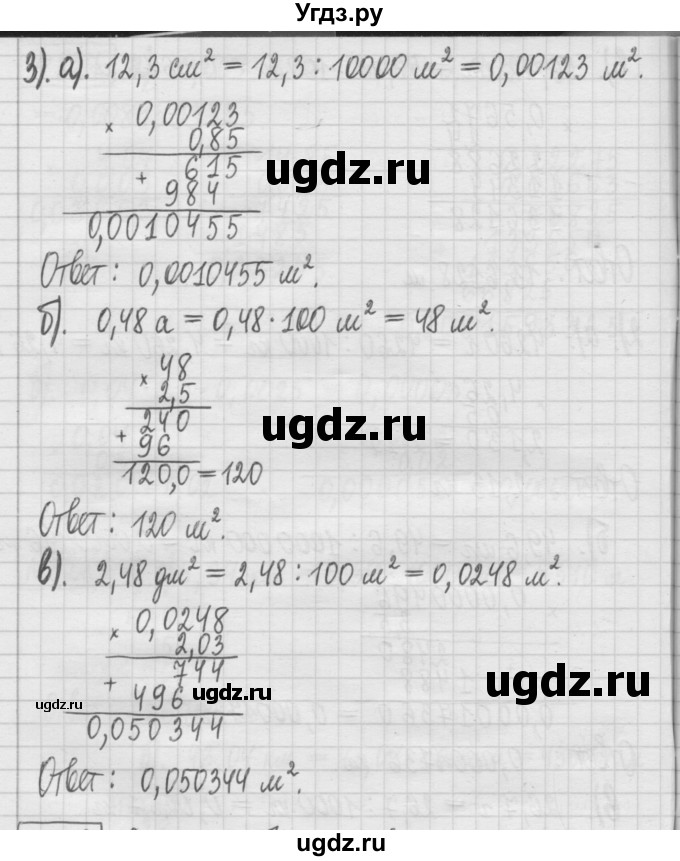 Угдз.ру
3). а). 12,3 см² = 12,3 : 10000 м² = 0,00123 м².
× 0,00123
0,85
+ 615
984
0,0010455
ugdz.ru
Ответ: 0,0010455 м².
б). 0,48 а = 0,48 · 100 м² = 48 м².
× 48
2,5
240
+ 96
120,0 = 120
ugdz.ru
Ответ: 120 м².
в). 2,48 дм² = 2,48 : 100 м² = 0,0248 м².
× 0,0248
2,03
+ 744
496
0,050344
ugdz.ru
ugdz.ru
ugdz.ru
Ответ: 0,050344 м².
ugdz.ru